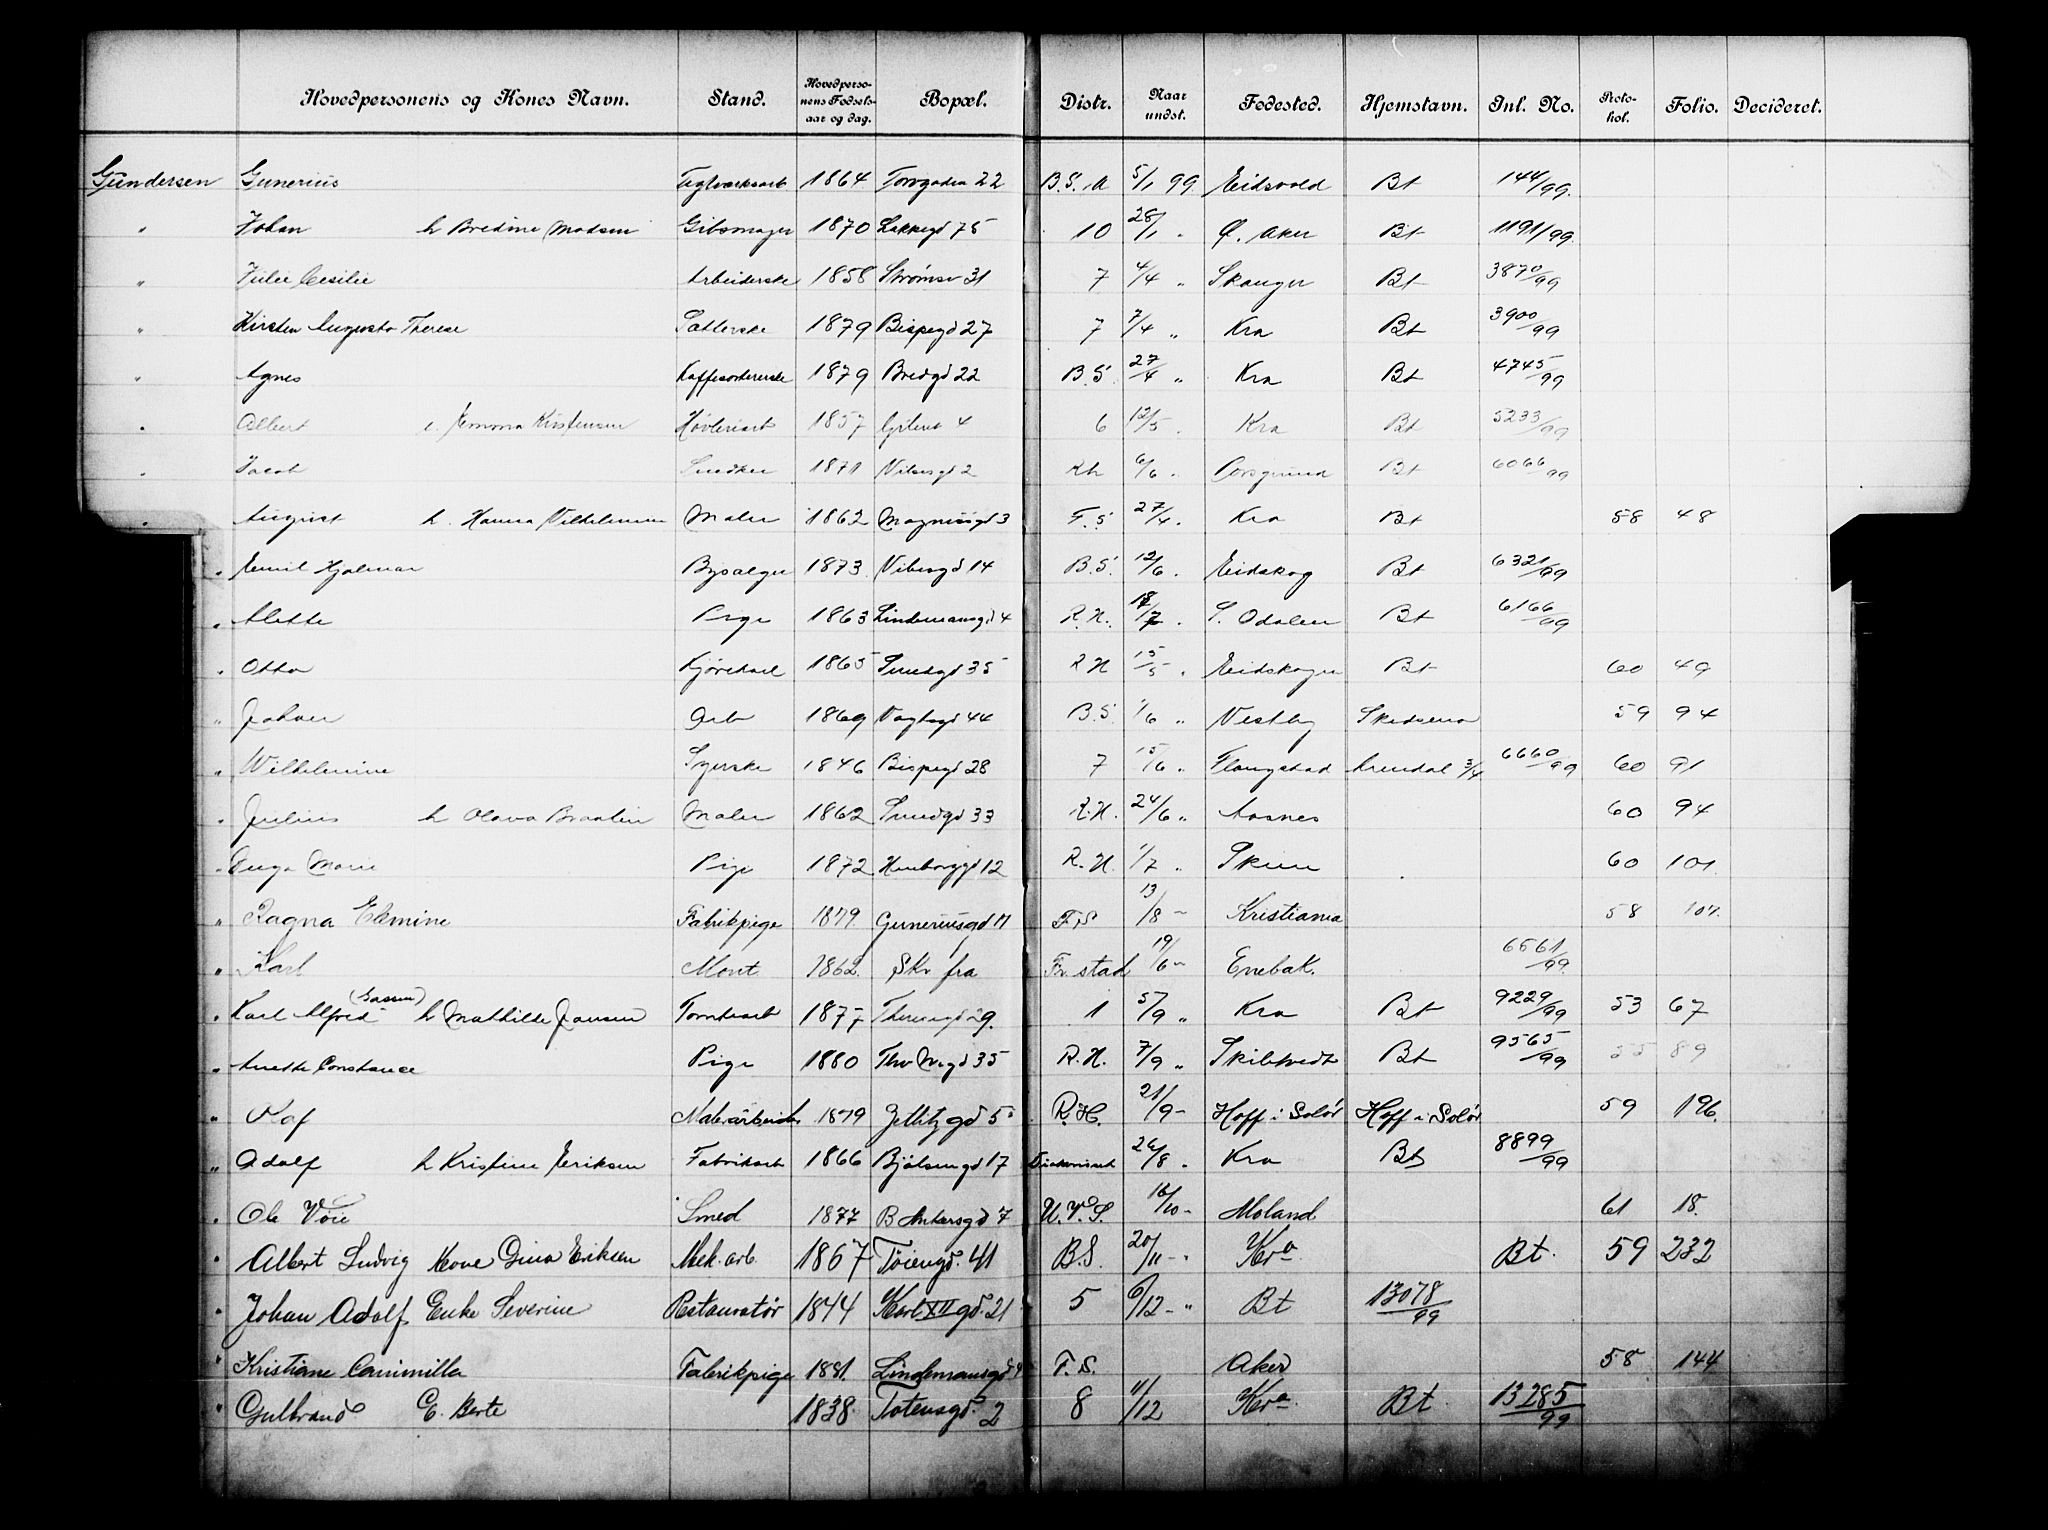 Hovedpersonens og Kones Navn. Stand. Hovedperso-nens Fødsels-aar og dag. Bopæl. Distr. Naar undst. Fødested. Hjemstavn. Inl. No. Proto-kol. Folio. Decideret.
Gundersen Gunerius Teglværksarb 1864 Torvgaden 22 B.S. A 5/1 99 Eidsvold Bt 144/99.
" Johan h Bredine Madsen Gibsmager 1870 Lakkegd 75 10 28/1 " Ø. Aker Bt 1191/99.
" Julie Cecilie Arbeiderske 1858 Strømsv 31 7 4/4 " Skauger Bt 3870/99
" Kirsten Augusta Therese Satterske 1879 Bispegd 27 7 7/4 " Kra Bt 3900/99
" Agnes Kaffesortererske 1879 Bredgd 22 B.S. 27/4 " Kra Bt 4745/99
" Albert e. Emma Kristensen Høvleriarb 1857 Grilens 4 6 12/5 " Kra Bt 5233/99
" Jacob Snedker 1871 Vibesgd 2 Rh 6/6 " Porsgrund Bt 6066/99
" August h. Hanna Vilhelmine Maler 1862 Magnusgd 3 F.S. 27/4 " Kra Bt 58 48
" Emil Hjalmar Bysælger 1873 Vibesgd 14 B.S. 12/6 " Eidskog Bt 6321/99
" Alette Pige 1863 Lindemansgd 4 R.H. 18/7 " S. Odalen Bt 6166/99
" Otto Kjørekarl 1865 Smedgd 35 R.H 15/5 " Eidskogen Bt 60 49
" Johan Arb 1869 Vogtsgd 44 B.S. 1/6 " Vestby Skedsmo 59 94
" Wilhelmine Syerske 1846 Bispegd 28 7 15/6 " Flangstad Arendal 3/4 6660/99 60 91
" Julius h Olava Braaten Maler 1862 Smedgd 33 R.H. 24/6 " Aasnes 60 94
" Inga Marie Pige 1872 12 R.H. 1/7 " Skien 60 101.
" Ragna Elmine Fabrikpige 1879. Guneriusgd 11 F.S 13/8 " Kristiania 58 107.
" Karl Mont. 1862. Skr fra Fr. stad 19/6 " Enebak. 6561/99.
" Karl Alfred h Mathilde Jansen Tomtearb 1877 Theresgd 29. 1 5/9 " Kra Bt 9229/99 53 67
" Anette Constance Pige 1880 Thv Megd 35 R.H. 7/9 " Skibtvedt Bt 9565/99 55 89
" Olaf Malerarbeider 1879 Zetlitzgd 5 R.H. 21/9 " Hoff i Solør Hoff i Solør 59 196.
" Adolf h Kristine Eriksen Fabrikarb 1866 Bjølsengd 17 Diakonisseh 26/8 " Kra Bt 8899/99
" Ole Voie Smed 1877 B Ankersgd 7 U.V.S. 16/10 " Moland 61 18.
" Albert Ludvig Kone Dina Eriksen Mek. arb. 1867 Tøiengd. 41 B.S. 20/11 " Kra Bt. 59 232
" Johan Adolf Enke Severine Restauratør 1844 Karl XII gd. 21 5 6/12 " Bt 13078/99
" Kristiane Camilla Fabrikpige 1881. Lindemansgd 4 F.S. Aker 58 144
" Gulbrand E. Berte 1838 Totensgd. 2 8 11/12 Kra Bt. 13285/99